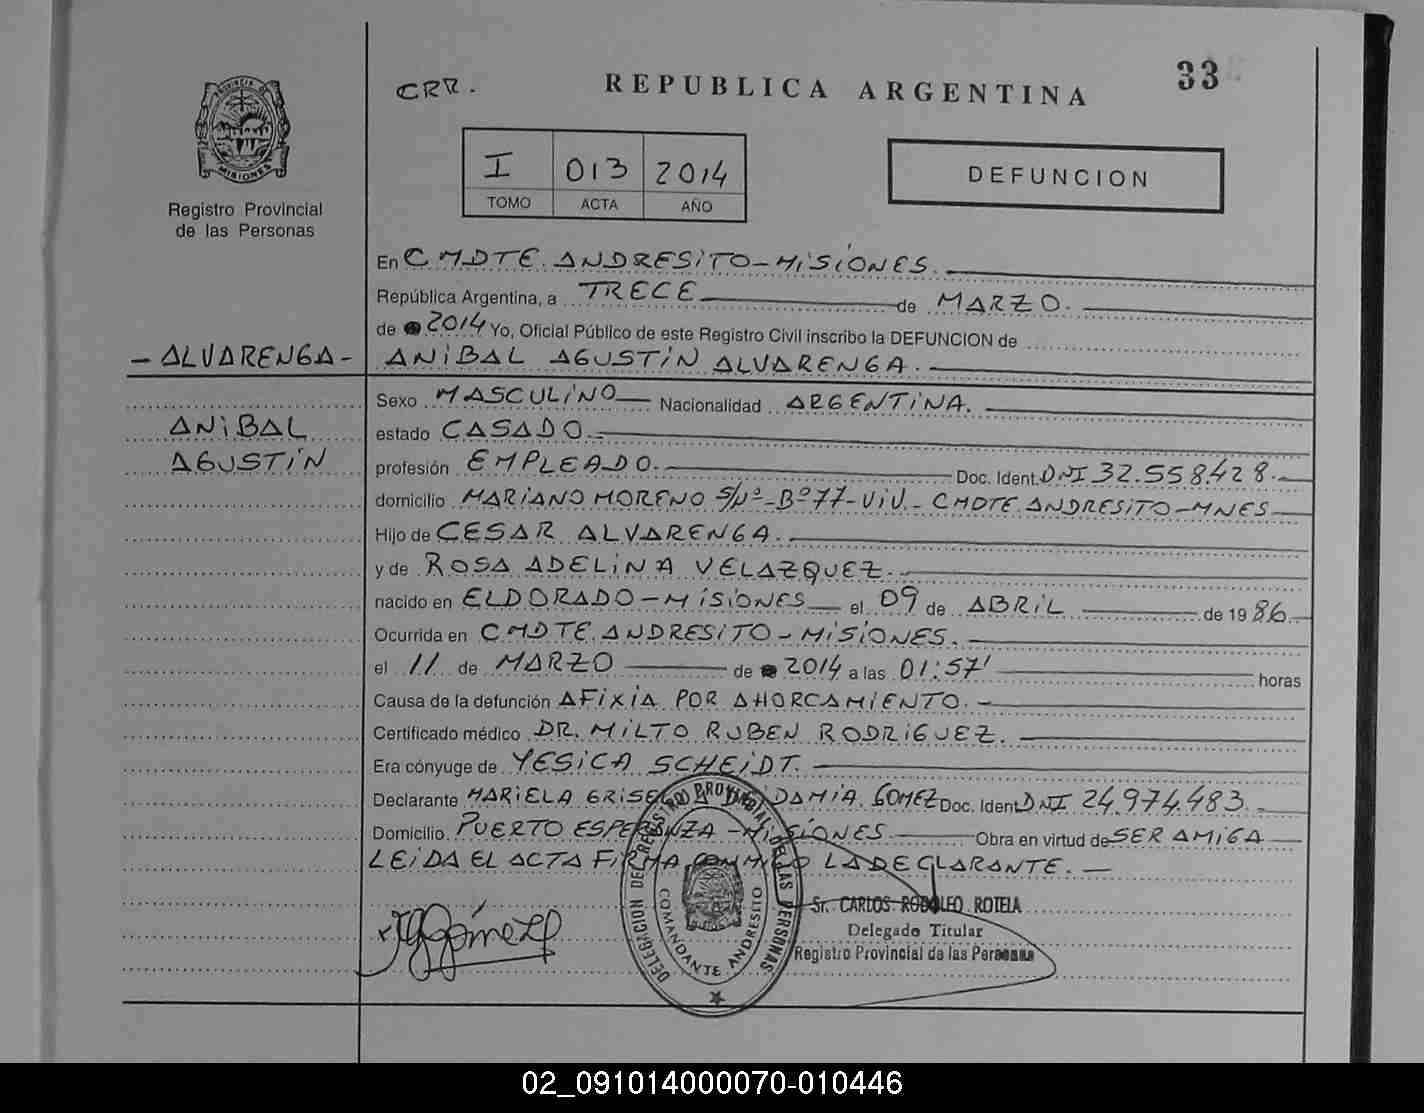 33
CRR.
REPUBLICA ARGENTINA
PROVINCIA DE
MISIONES
Registro Provincial
de las Personas
I 013 2014
TOMO ACTA AÑO
DEFUNCION
En CMDTE. ANDRESITO-MISIONES.
República Argentina, a TRECE de MARZO.
de 2014 Yo, Oficial Público de este Registro Civil inscribo la DEFUNCION de
- ALVARENGA - ANIBAL AGUSTIN ALVARENGA.
Sexo MASCULINO Nacionalidad ARGENTINA.
ANIBAL estado CASADO.
AGUSTIN profesión EMPLEADO. Doc. Ident. DNI 32.558.428.
domicilio MARIANO MORENO S/Nº-Bº77-VIV.- CMDTE. ANDRESITO-MNES
Hijo de CESAR ALVARENGA.
y de ROSA ADELINA VELAZQUEZ.
nacido en ELDORADO-MISIONES el 09 de ABRIL de 1986.
Ocurrida en CMDTE. ANDRESITO-MISIONES.
el 11 de MARZO de 2014 a las 01:57' horas
Causa de la defunción AFIXIA POR AHORCAMIENTO.
Certificado médico DR. MILTO RUBEN RODRIGUEZ.
Era cónyuge de YESICA SCHEIDT.
Declarante MARIELA GRISELDA DAMIA GOMEZ Doc. Ident. DNI 24.974.483.
Domicilio PUERTO ESPERANZA-MISIONES Obra en virtud de SER AMIGA
LEIDA EL ACTA FIRMA CONMIGO LA DECLARANTE.
DELEGACION DEL REGISTRO PROVINCIAL DE LAS PERSONAS
COMANDANTE ANDRESITO
Sr. CARLOS RODOLFO ROTELA
Delegado Titular
Registro Provincial de las Personas
02_091014000070-010446